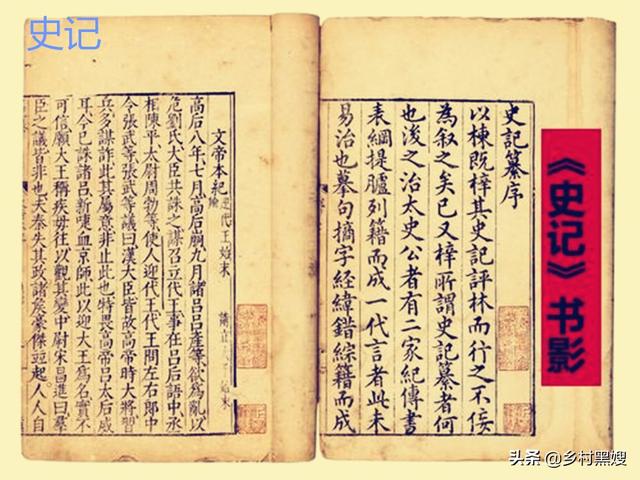 史记
史記纂序
以棟既梓其史記評林而行之不佞
為叙之矣已又梓所謂史記纂者何
也後之治太史公者有二家紀傳書
表綱提臚列籍而成一代言者此未
易治也摹句摘字經緯錯綜籍而成
文帝本紀
高后八年七月高后崩九月諸呂呂產等欲為亂以
危劉氏大臣共誅之謀召立代王事在呂后語中丞
相陳平太尉周勃等使人迎代王代王問左右郎中
令張武等張武等議曰漢大臣皆故高帝時大將習
兵多謀詐此其屬意非止此也特畏高帝呂太后威
耳今已誅諸呂新喋血京師此以迎大王為名實不
可信願大王稱疾毋往以觀其變中尉宋昌進曰羣
臣之議皆非也夫秦失其政諸矦豪傑並起人人自
《史记》书影
头条 @乡村黑嫂